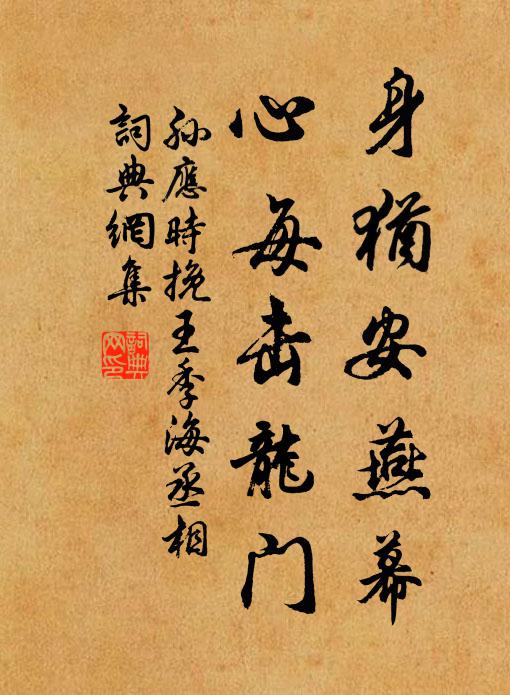 身猶安燕幕
心每击龍門
孙應時挽王季海丞相
詞典網集
詞典
网印